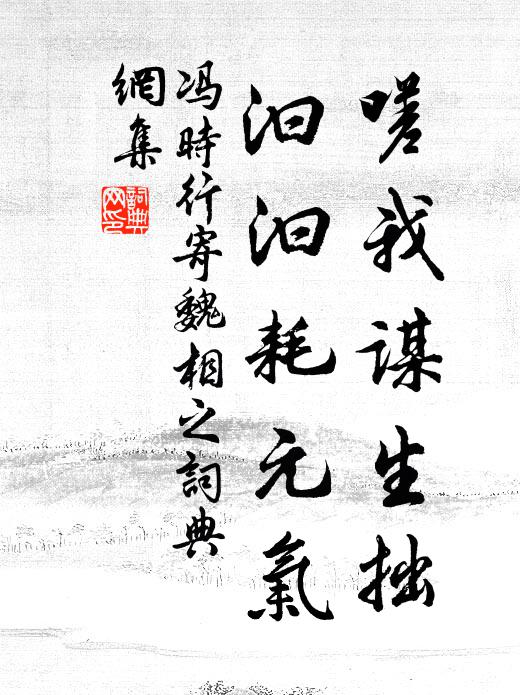 嗟我謀生拙
汩汩耗元氣
馮時行寄魏相之詞典
網集
詞典網印